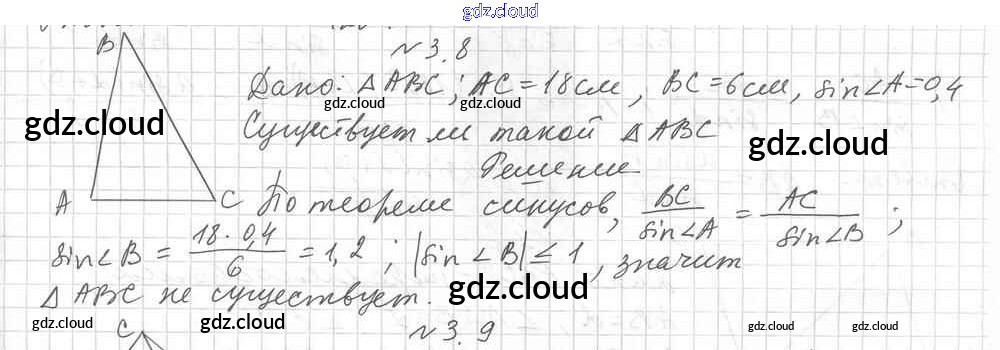 gdz.cloud
N 3.8
B
Дано: △ABC; AC = 18 см, BC = 6 см, sin∠A = 0,4
gdz.cloud gdz.cloud gdz.cloud
gdz.cloud
Существует ли такой △ABC
gdz.cloud
Решение
A C По теореме синусов, BC/sin∠A = AC/sin∠B;
sin∠B = 18·0,4/6 = 1,2; |sin∠B| ≤ 1, значит
△ABC не существует.
gdz.cloud
gdz.cloud gdz.cloud gdz.cloud gdz.cloud
C N 3.9